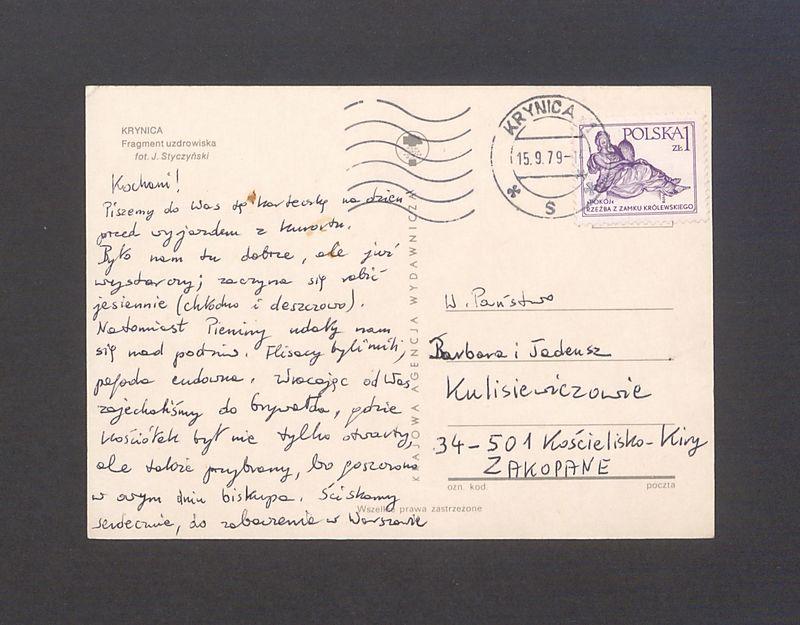 KRYNICA
Fragment uzdrowiska
fot. J. Styczyński
Kochani!
Piszemy do Was tę karteczkę na dzień
przed wyjazdem z kurortu.
Było nam tu dobrze, ale już
wystarczy; zaczyna się robić
jesiennie (chłodno i deszczowo).
Natomiast Pieniny udały nam
się nad podziw. Flisacy byli mili,
pogoda cudowna. Wracając od Was
zajechaliśmy do Grywałdu, gdzie
kościółek był nie tylko otwarty,
ale także przybrany, bo goszczono
w owym dniu biskupa. Ściskamy
serdecznie, do zobaczenia w Warszawie
KRAJOWA AGENCJA WYDAWNICZA
Wszelkie prawa zastrzeżone
KRYNICA
15.9.79-1
S
POLSKA 1
ZŁ
POKÓJ
RZEŹBA Z ZAMKU KRÓLEWSKIEGO
W. Państwo
Barbara i Tadeusz
Kulisiewiczowie
34-501 Kościelisko-Kiry
ZAKOPANE
ozn. kod. poczta